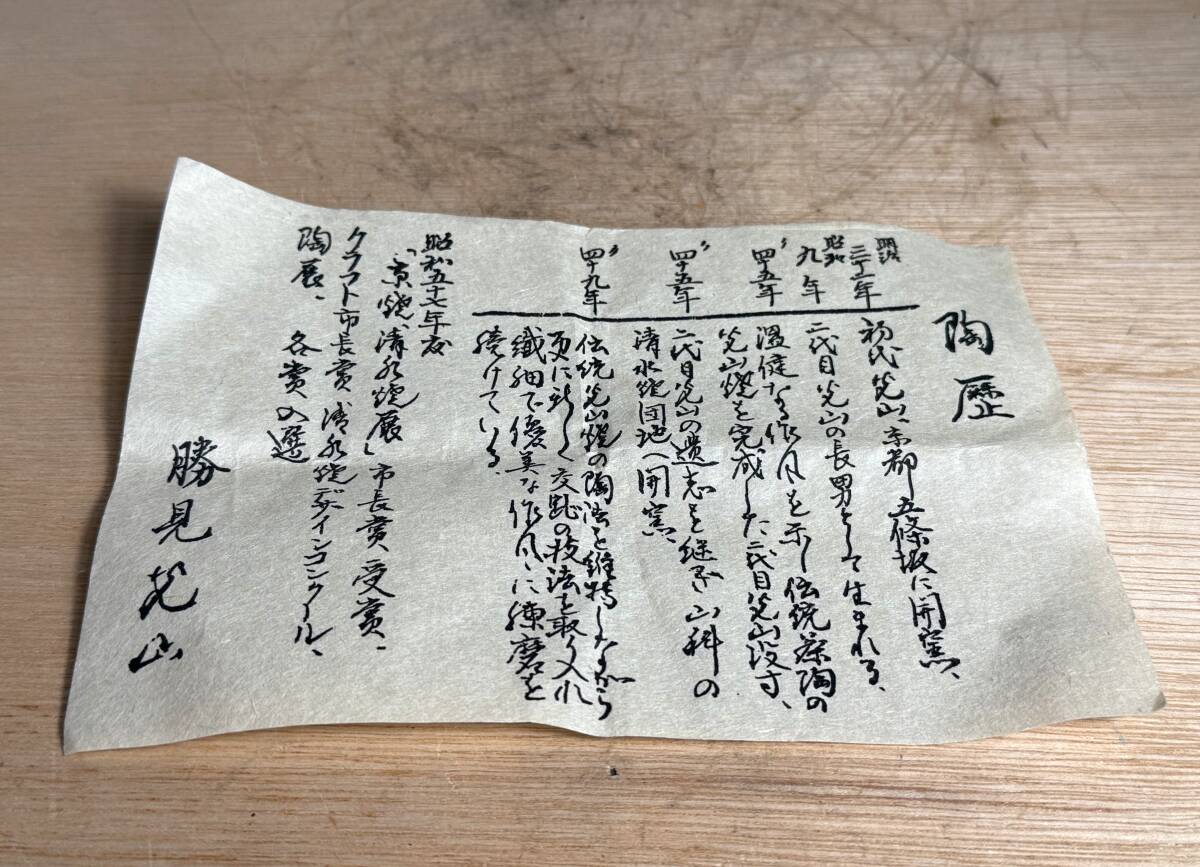 陶歴
明治三十二年 初代光山、京都五條坂に開窯、
昭和九年 二代目光山の長男として生まれる、
〃四十五年 温健なる作風を示し伝統茶陶の
光山焼を完成した二代目光山没す、
〃四十五年 二代目光山の遺志を継ぎ山科の
清水焼団地へ開窯、
〃四十九年 伝統光山焼の陶法を維持しながら
更に新しく交趾の技法を取り入れ
繊細で優美な作風に練磨を
続けている、
昭和五十七年度
「京焼、清水焼展」市長賞、受賞、
クラフト市長賞、清水焼デザインコンクール、
陶展、各賞入選
勝見光山